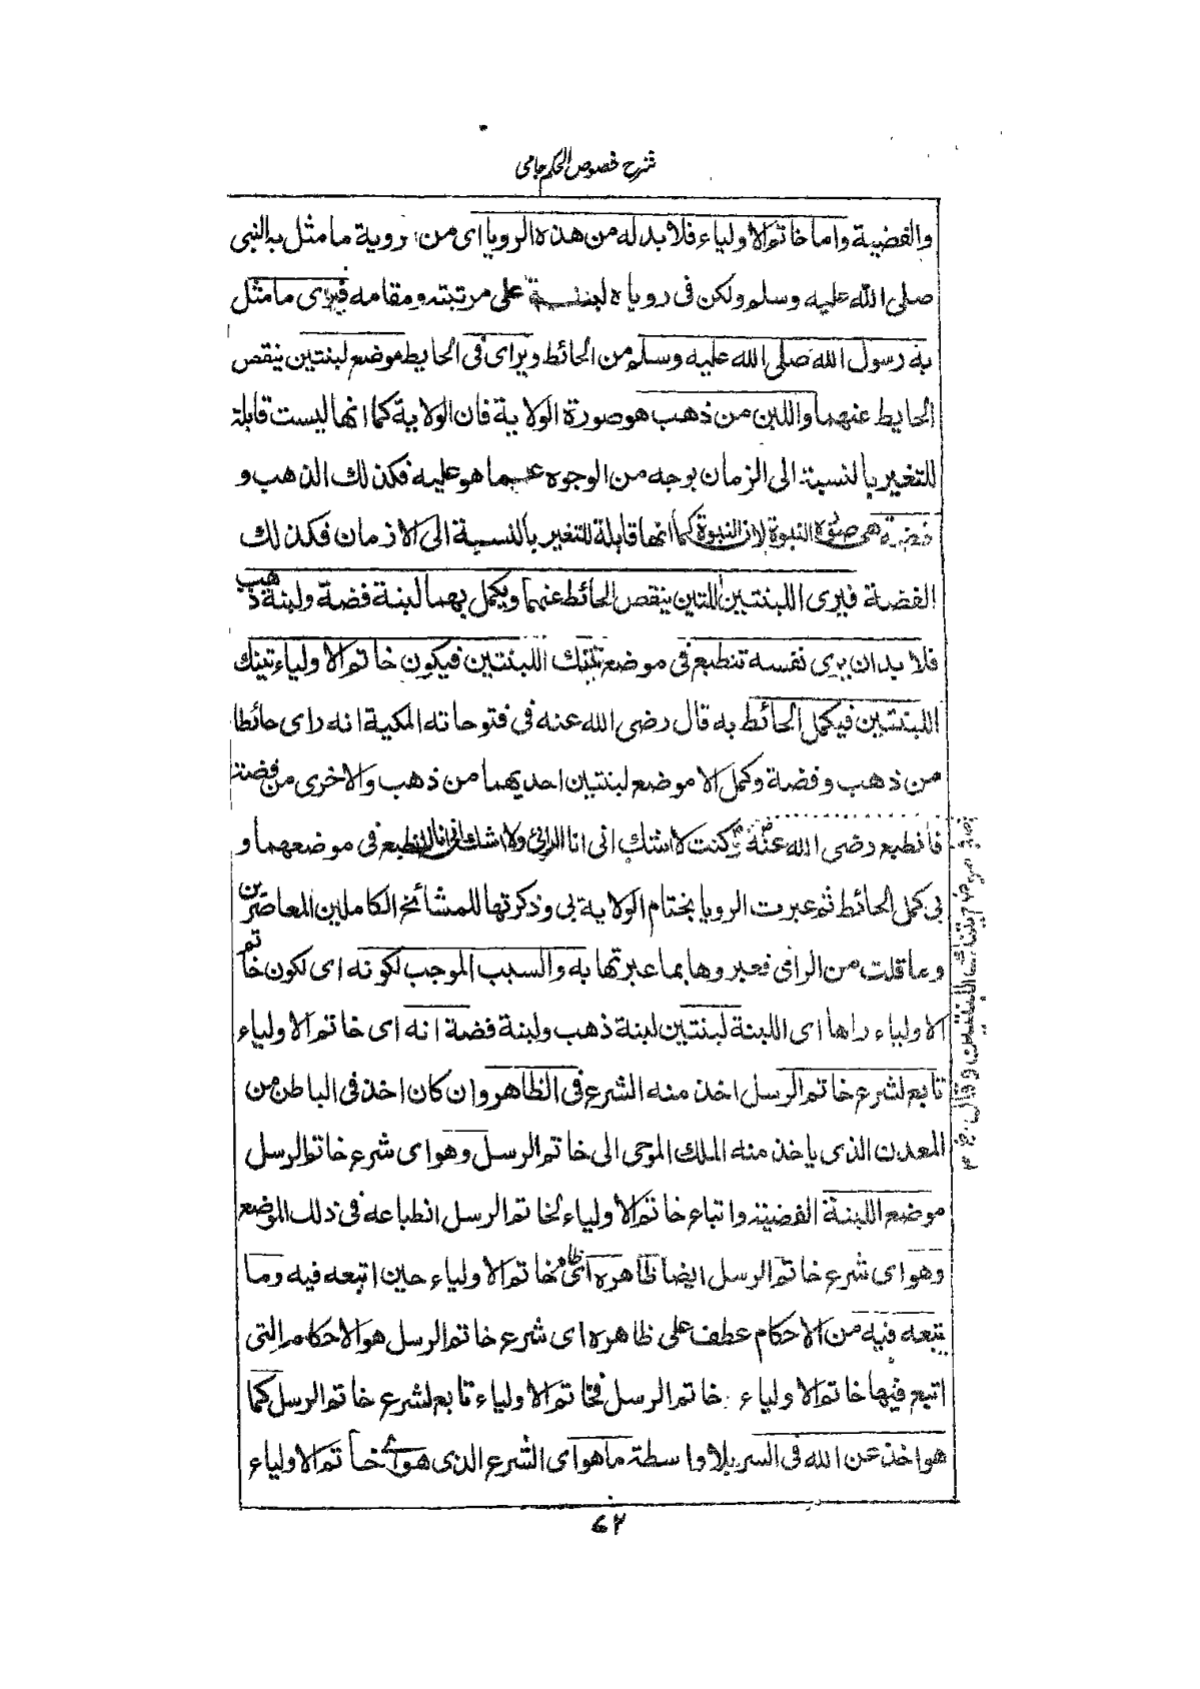 شرح فصوص الحکم جامی
والفضیة واما خاتم الاولیاء فلا بد له من هذه الرویا ای من رویة ما مثل به النبی
صلی الله علیه وسلم ولکن فی رویاه علی مرتبته ومقامه فیری ما مثل
به رسول الله صلی الله علیه وسلم من الحائط ویرای فی الحایط موضع لبنتین ینقص
الحایط عنهما واللبن من ذهب هو صورة الولایة فان الولایة کما انها لیست قابلة
للتغیر بالنسبة الی الزمان بوجه من الوجوه عما هو علیه فکذلك الذهب و
فضة هی صورة النبوة لان النبوة کما انها قابلة للتغیر بالنسبة الی الازمان فکذلك
الفضة فیری اللبنتین اللتین ینقص الحائط عنهما ویکمل بهما لبنة فضة ولبنة ذهب
فلا بد ان یری نفسه تنطبع فی موضع تینك اللبنتین فیکون خاتم الاولیاء تینك
اللبنتین فیکمل الحائط به قال رضی الله عنه فی فتوحاته المکیة انه رای حائطا
من ذهب وفضة وکمل الا موضع لبنتین احدیهما من ذهب والاخری من فضة
فانطبع رضی الله عنه کنت لا اشك انی انا الرائی ولا اشك انی انا المنطبع فی موضعهما و
بی کمل الحائط ثم عبرت الرویا بختام الولایة بی وذکرتها للمشائخ الکاملین المعاصرین
وما قلت من الرائی فعبروها بما عبرتها به والسبب الموجب لکونه ای لکون خاتم
الاولیاء راها ای اللبنة لبنتین لبنة ذهب ولبنة فضة انه ای خاتم الاولیاء
تابع لشرع خاتم الرسل اخذ منه الشرع فی الظاهر وان کان اخذ فی الباطن من
المعدن الذی یاخذ منه الملك الموحی الی خاتم الرسل وهو ای شرع خاتم الرسل
موضع اللبنة الفضیة واتباع خاتم الاولیاء لخاتم الرسل انطباعه فی ذلك الموضع
وهو ای شرع خاتم الرسل ایضا ظاهره ای ظاهر خاتم الاولیاء حین اتبعه فیه وما
یتبعه فیه من الاحکام عطف علی ظاهره ای شرع خاتم الرسل هو الاحکام التی
اتبع فیها خاتم الاولیاء خاتم الرسل فخاتم الاولیاء تابع لشرع خاتم الرسل کما
هو اخذ عن الله فی السر بلا واسطة ما هو ای الشرع الذی هو ای خاتم الاولیاء
تینك اللبنتین وقال
۶۲